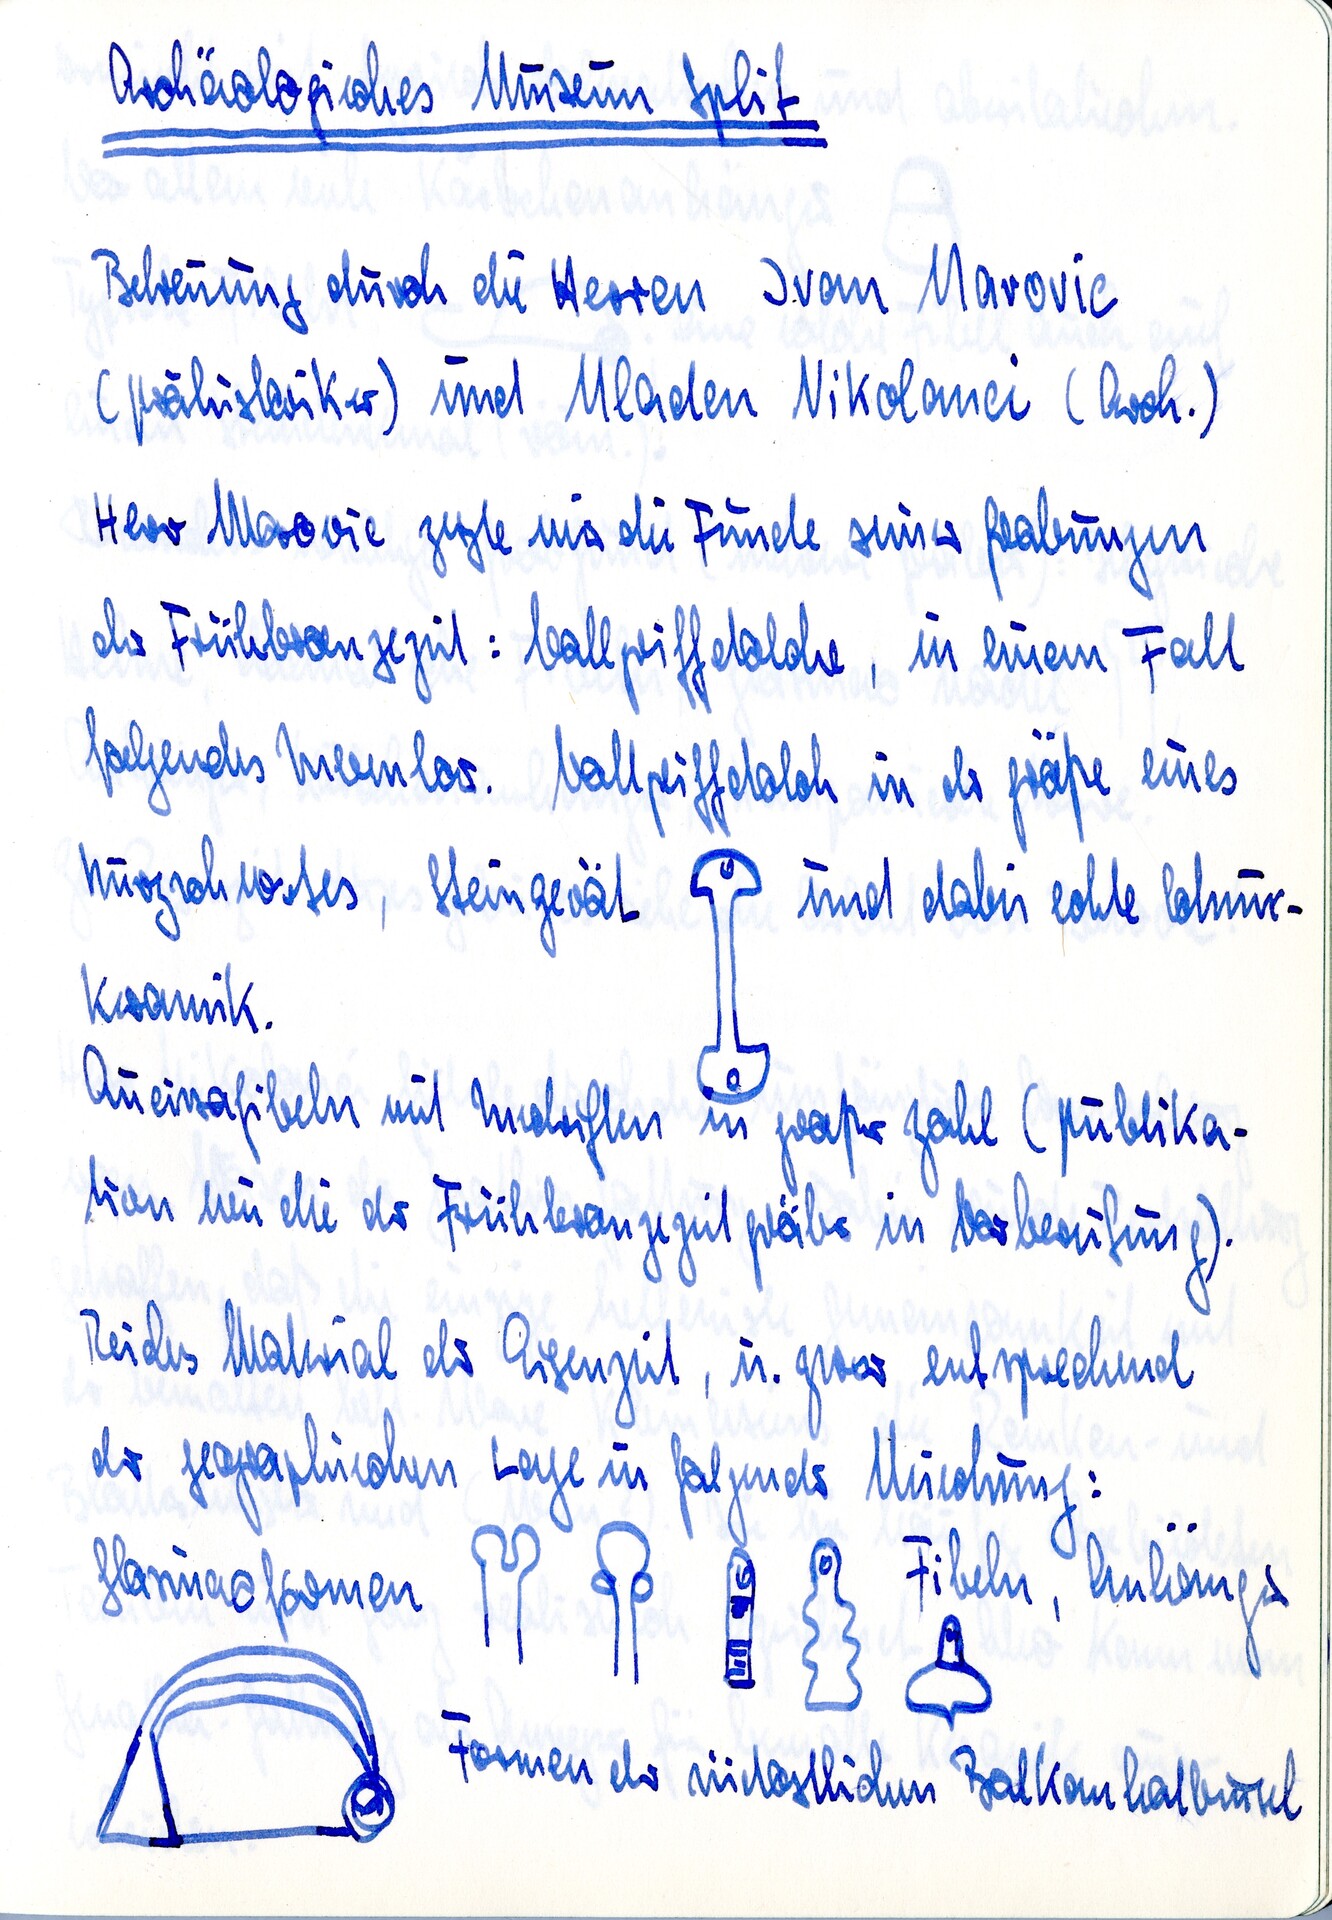 Archäologisches Museum Split
Betreuung durch die Herren Ivan Marovic
(Prähistoriker) und Mladen Nikolanci (Arch.)
Herr Marovic zeigte mir die Funde seiner Grabungen
der Frühbronzezeit: Vollgriffdolche, in einem Fall
folgendes Inventar. Vollgriffdolch in der Größe eines
Kurzschwertes, Steingerät und dabei echte Schnur-
keramik.
Aucissafibeln mit Inschriften in großer Zahl (Publika-
tion wie die der Frühbronzezeitgräber in Vorbereitung).
Reiches Material der Eisenzeit, u. zwar entsprechend
der geographischen Lage in folgender Mischung:
Glasinacformen Fibeln, Anhänger
Formen der südöstlichen Balkanhalbinsel